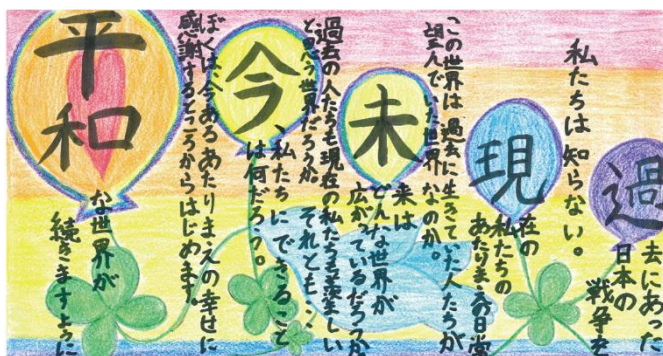 過去にあった
日本の
戦争を
私たちは知らない。
現在の
私たちの
あたりまえの日常
この世界は過去に生きていた人たちが
望んでいた世界なのか。
未来は
どんな世界が
広がっているだろうか
過去の人たちも現在の私たちも楽しい
と思う世界だろうか それとも…
今、私たちにできること
は何だろう。
ぼくは、今あるあたりまえの幸せに
感謝するところからはじめます。
平和な世界が
続きますように